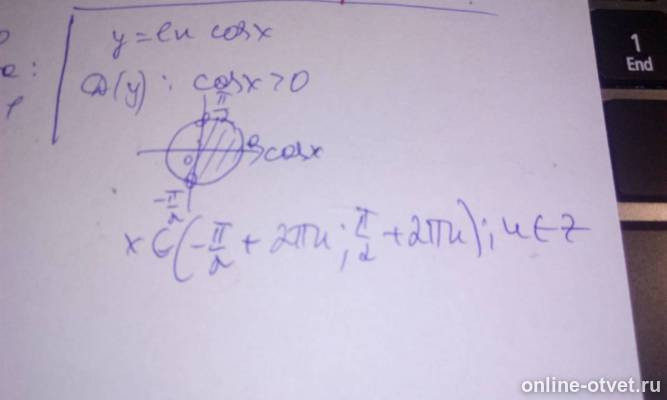 y = ln cosx
D(y): cosx > 0
π/2
0
cosx
-π/2
x ∈ (-π/2 + 2πn; π/2 + 2πn); n ∈ Z
1
End
online-otvet.ru